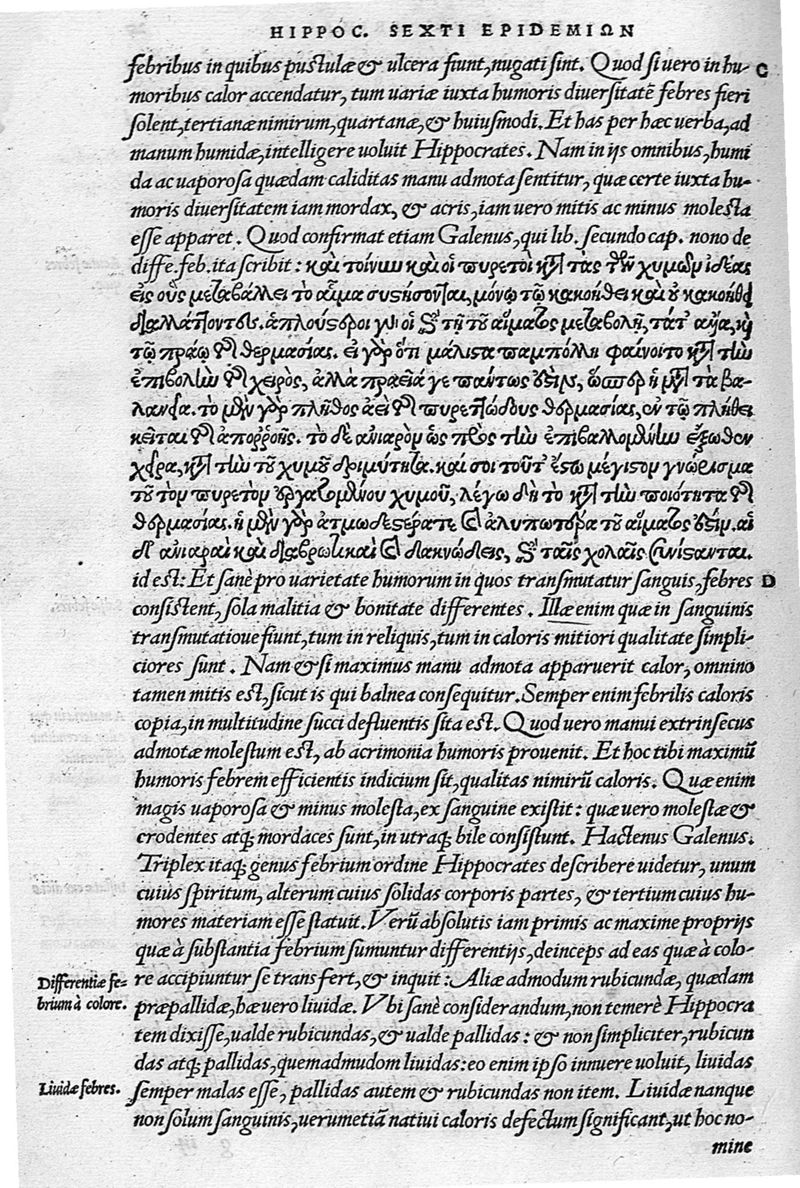 HIPPOC. SEXTI EPIDEMIΩN
febribus in quibus pustulæ & ulcera fiunt, nugati sint. Quod si uero in hu- C
moribus calor accendatur, tum uariæ iuxta humoris diuersitatē febres fieri
solent, tertianæ nimirum, quartanæ, & huiusmodi. Et has per hæc uerba, ad
manum humidæ, intelligere uoluit Hippocrates. Nam in ijs omnibus, humi
da ac uaporosa quædam caliditas manu admota sentitur, quæ certe iuxta hu-
moris diuersitatem iam mordax, & acris, iam uero mitis ac minus molesta
esse apparet. Quod confirmat etiam Galenus, qui lib. secundo cap. nono de
diffe. feb. ita scribit: καὶ τοίνυν καὶ οἱ πυρετοὶ κατὰ τὰς τῶν χυμῶν ἰδέας
εἰς οὓς μεταβάλλει τὸ αἷμα συστήσονται, μόνῳ τῷ κακοήθει καὶ οὐ κακοήθει
διαλλάττοντες. ἁπλούστεροι γὰρ οἱ ἐν τῇ τοῦ αἵματος μεταβολῇ, τά τ' ἄλλα, καὶ
τῷ πράῳ τῆς θερμασίας. εἰ γὰρ ὅτι μάλιστα παμπόλλη φαίνοιτο κατὰ τὴν
ἐπιβολὴν τῆς χειρὸς, ἀλλὰ πραεῖά γε πάντως ἐστὶν, ὥσπερ ἡ μετὰ τὰ βα-
λανεῖα. τὸ μὲν γὰρ πλῆθος ἀεὶ τῆς πυρετώδους θερμασίας, ἐν τῷ πλήθει
κεῖται τῆς ἀποῤῥοῆς. τὸ δὲ ἀνιαρὸν ὡς πρὸς τὴν ἐπιβαλλομένην ἔξωθεν
χεῖρα, κατὰ τὴν τοῦ χυμοῦ δριμύτητα. καί σοι τοῦτ' ἔστω μέγιστον γνώρισμα
τοῦ τὸν πυρετὸν ἐργαζομένου χυμοῦ, λέγω δὴ τὸ κατὰ τὴν ποιότητα τῆς
θερμασίας. ἡ μὲν γὰρ ἀτμωδεστέρα τε καὶ ἀλυποτέρα τοῦ αἵματός ἐστιν. αἱ
δὲ ἀνιαραὶ καὶ διαβρωτικαὶ καὶ δακνώδεις, ἐν ταῖς χολαῖς συνίστανται.
id est: Et sanè pro uarietate humorum in quos transmutatur sanguis, febres D
consistent, sola malitia & bonitate differentes. Illæ enim quæ in sanguinis
transmutatioue fiunt, tum in reliquis, tum in caloris mitiori qualitate simpli-
ciores sunt. Nam & si maximus manu admota apparuerit calor, omnino
tamen mitis est, sicut is qui balnea consequitur. Semper enim febrilis caloris
copia, in multitudine succi defluentis sita est. Quod uero manui extrinsecus
admotæ molestum est, ab acrimonia humoris prouenit. Et hoc tibi maximū
humoris febrem efficientis indicium sit, qualitas nimirū caloris. Quæ enim
magis uaporosa & minus molesta, ex sanguine existit: quæ uero molestæ &
crodentes atq; mordaces sunt, in utraq; bile consistunt. Hactenus Galenus.
Triplex itaq; genus febrium ordine Hippocrates describere uidetur, unum
cuius spiritum, alterum cuius solidas corporis partes, & tertium cuius hu-
mores materiam esse statuit. Verū absolutis iam primis ac maxime proprijs
quæ à substantia febrium sumuntur differentijs, deinceps ad eas quæ à colo-
Differentiæ fe- re accipiuntur se transfert, & inquit: Aliæ admodum rubicundæ, quædam
brium à colore. præpallidæ, hæ uero liuidæ. Vbi sanè considerandum, non temerè Hippocra
tem dixisse, ualde rubicundas, & ualde pallidas: & non simpliciter, rubicun
das atq; pallidas, quemadmudom liuidas: eo enim ipso innuere uoluit, liuidas
Liuidæ febres. semper malas esse, pallidas autem & rubicundas non item. Liuidæ nanque
non solum sanguinis, uerumetiā natiui caloris defectum significant, ut hoc no-
mine